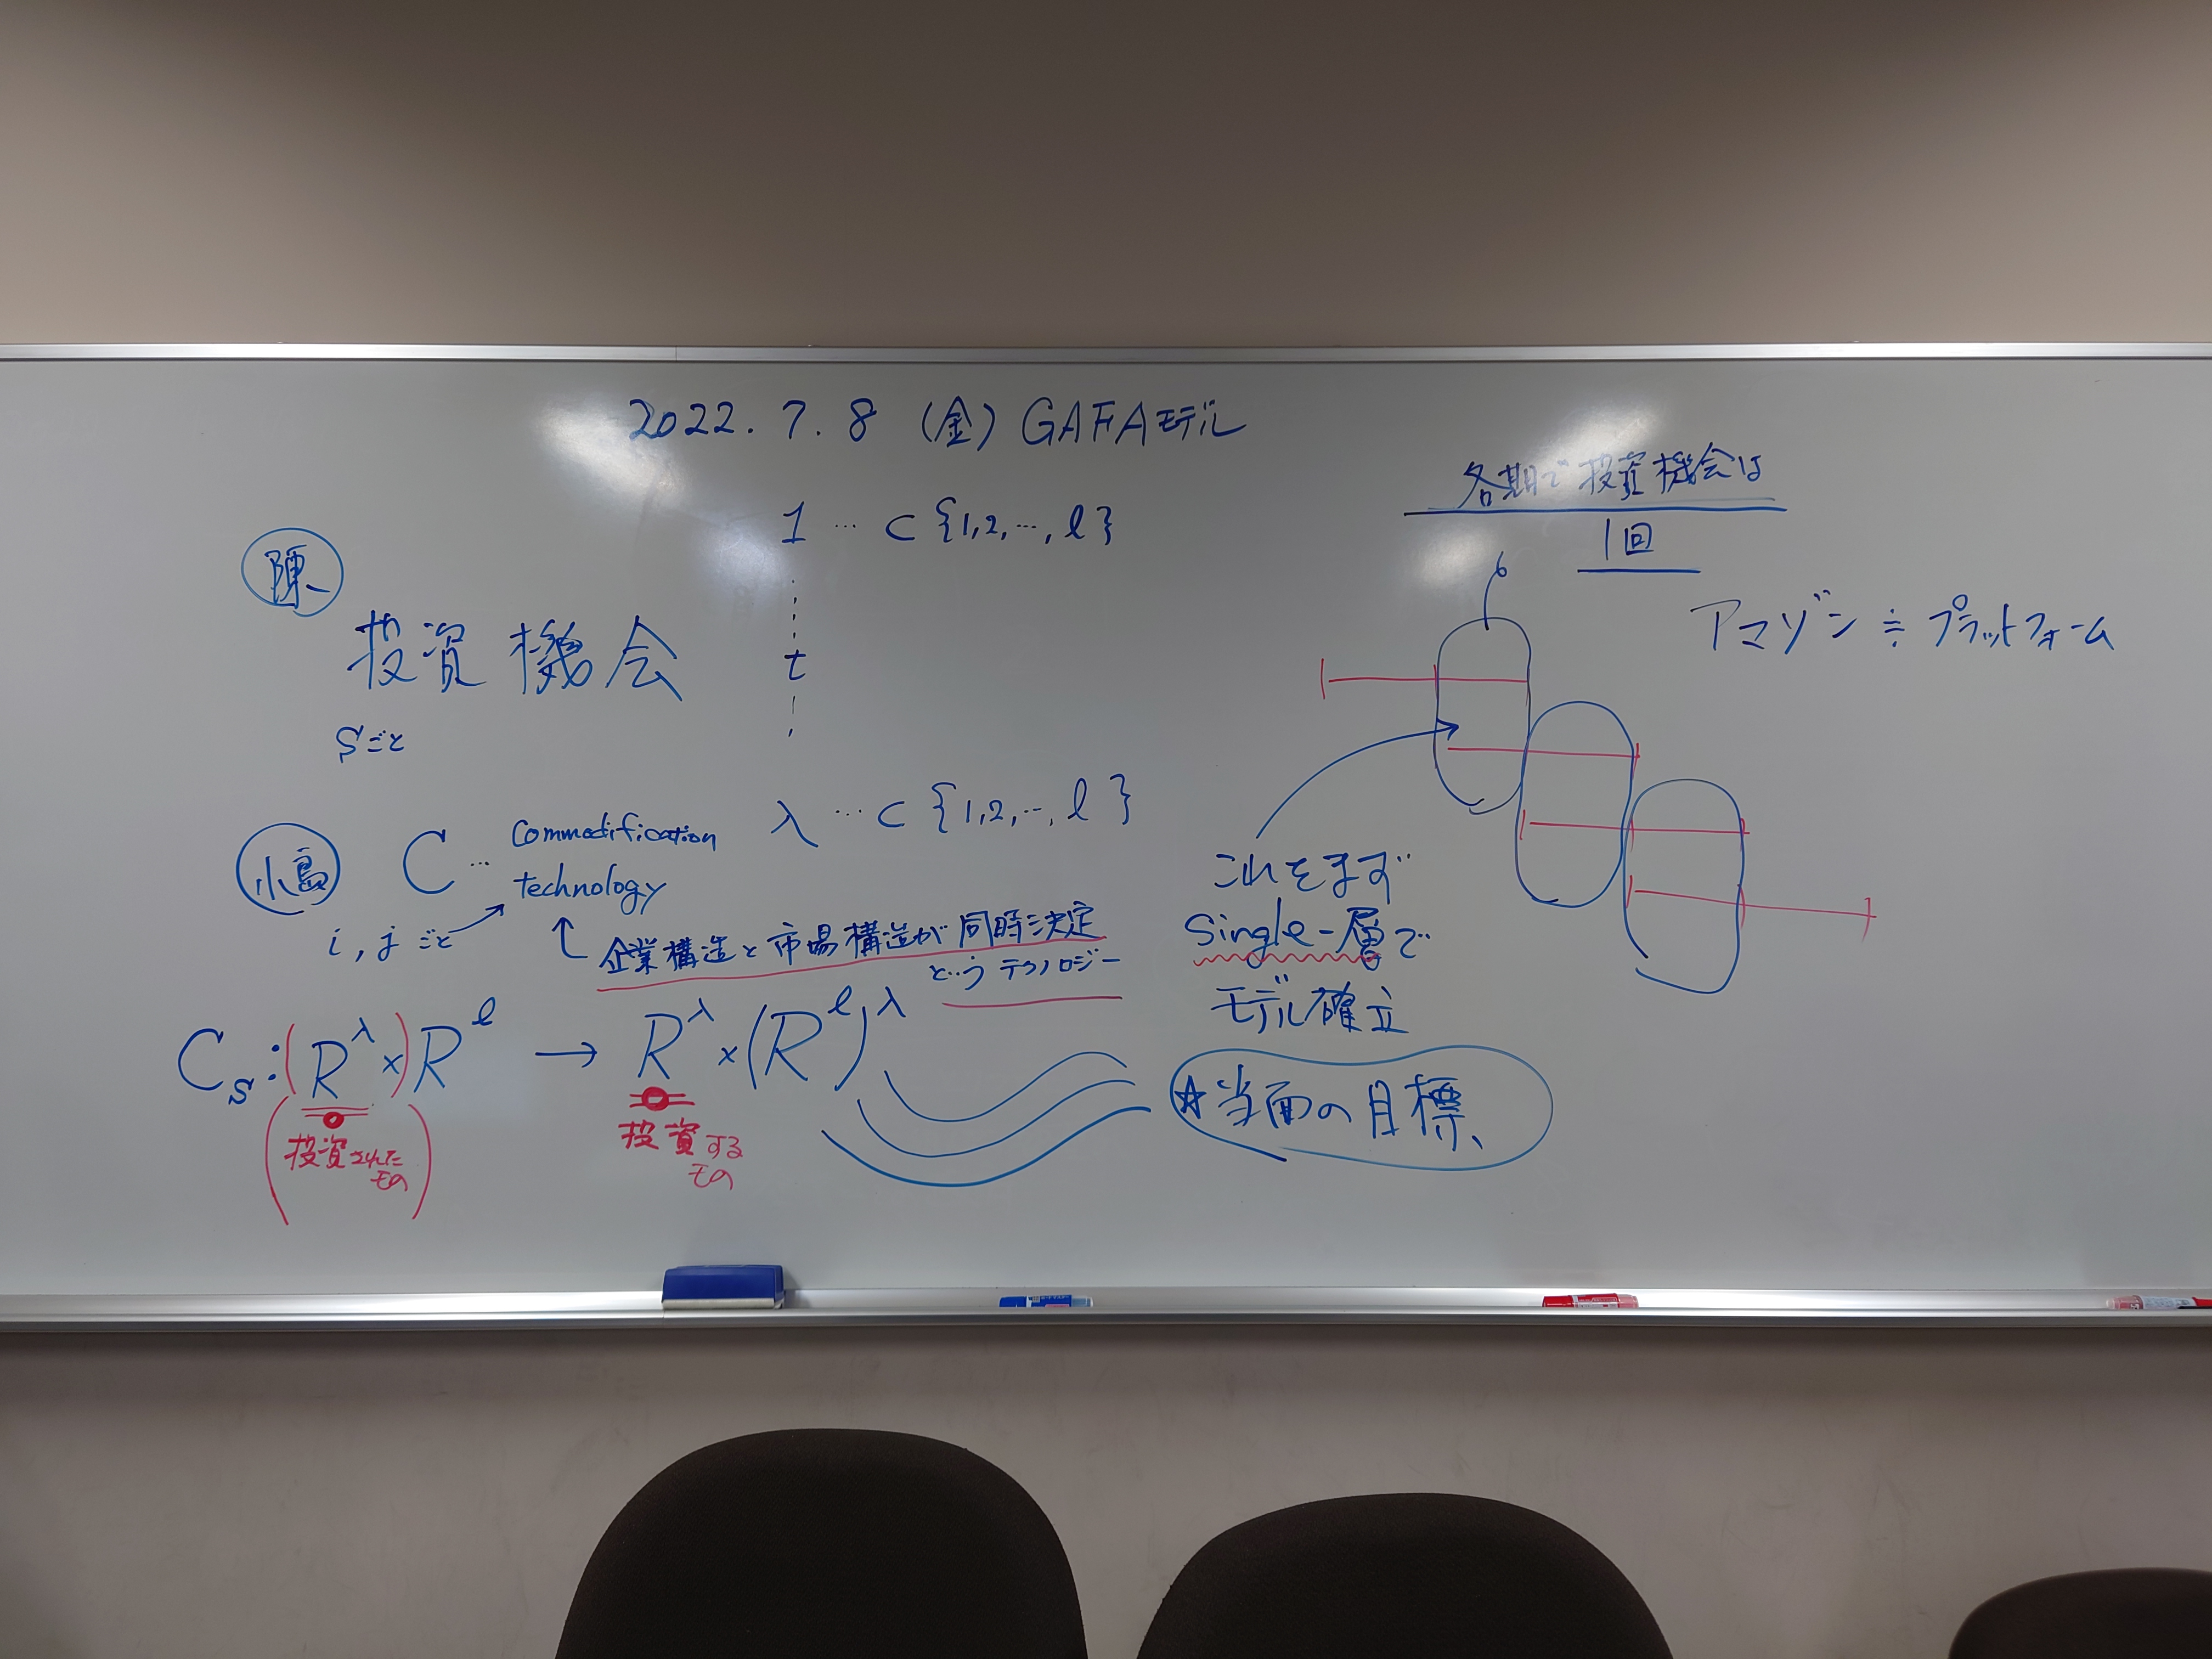 2022. 7. 8 (金) GAFAモデル
陳
投資機会
Sごと
1 … ⊂ {1,2,…, ℓ}
t
λ … ⊂ {1,2,…, ℓ}
小島
C … Commodification
technology
i, j ごと
企業構造と市場構造が同時決定
というテクノロジー
C_S : (R^λ ×) R^ℓ → R^λ × (R^ℓ)^λ
(投資されたもの)
投資するもの
各期で投資機会は
1回
アマゾン ≒ プラットフォーム
これをまず
Single-層で
モデル確立
☆当面の目標、